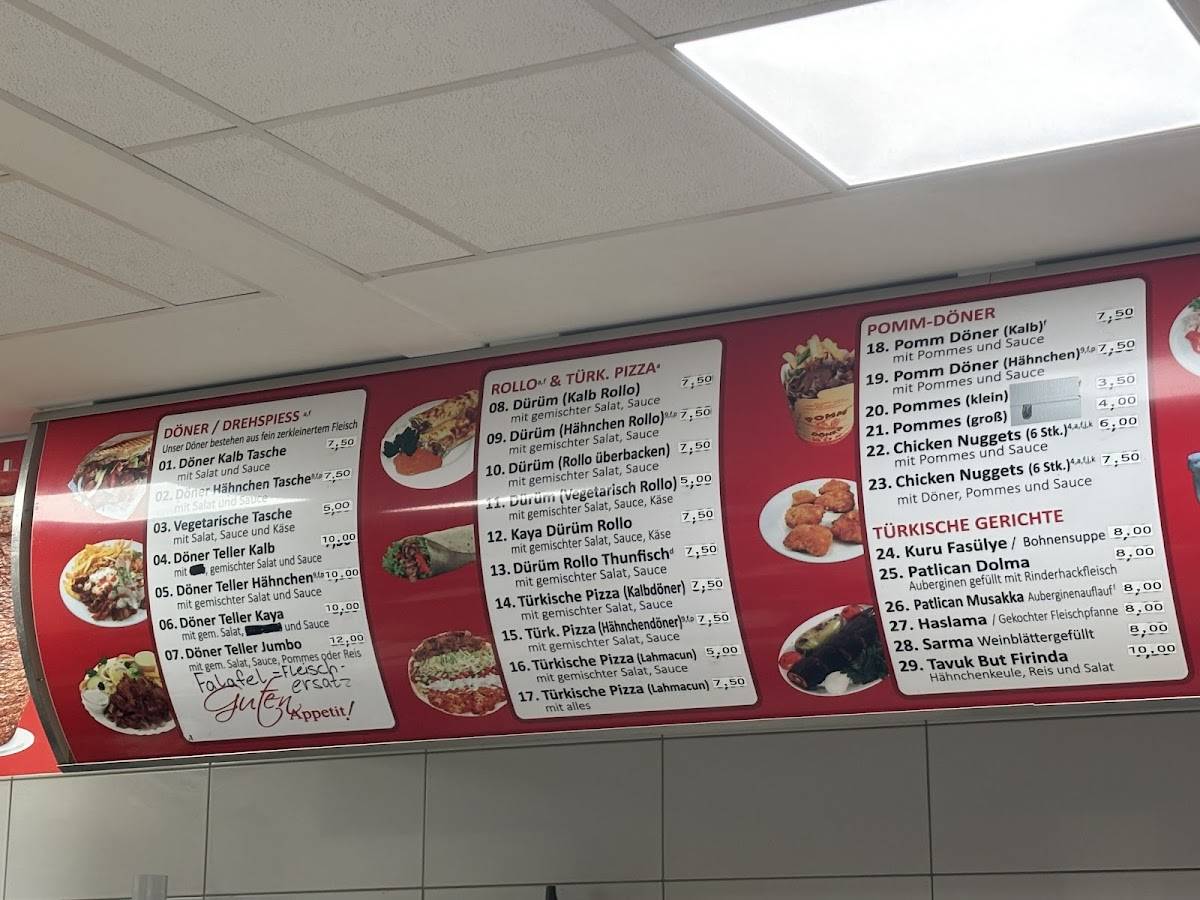 DÖNER / DREHSPIESS a,f
Unser Döner bestehen aus fein zerkleinertem Fleisch
01. Döner Kalb Tasche 7,50
mit Salat und Sauce
02. Döner Hähnchen Tasche 7,50
mit Salat und Sauce
03. Vegetarische Tasche 5,00
mit Salat, Sauce und Käse
04. Döner Teller Kalb 10,00
mit , gemischter Salat und Sauce
05. Döner Teller Hähnchen 10,00
mit gemischter Salat und Sauce
06. Döner Teller Kaya 10,00
mit gem. Salat, und Sauce
07. Döner Teller Jumbo 12,00
mit gem. Salat, Sauce, Pommes oder Reis
Falafel = Fleisch-
ersatz
Guten
Appetit!
ROLLO a,f & TÜRK. PIZZA a
08. Dürüm (Kalb Rollo) 7,50
mit gemischter Salat, Sauce
09. Dürüm (Hähnchen Rollo) 7,50
mit gemischter Salat, Sauce
10. Dürüm (Rollo überbacken) 7,50
mit gemischter Salat, Sauce
11. Dürüm (Vegetarisch Rollo) 5,00
mit gemischter Salat, Sauce, Käse
12. Kaya Dürüm Rollo 7,50
mit gemischter Salat, Sauce, Käse
13. Dürüm Rollo Thunfisch d 7,50
mit gemischter Salat, Sauce
14. Türkische Pizza (Kalbdöner) 7,50
mit gemischter Salat, Sauce
15. Türk. Pizza (Hähnchendöner) 7,50
mit gemischter Salat, Sauce
16. Türkische Pizza (Lahmacun) 5,00
mit gemischter Salat, Sauce
17. Türkische Pizza (Lahmacun) 7,50
mit alles
POMM
DÖNER
POMM-DÖNER
18. Pomm Döner (Kalb) f 7,50
mit Pommes und Sauce
19. Pomm Döner (Hähnchen) 7,50
mit Pommes und Sauce
20. Pommes (klein) 3,50
21. Pommes (groß) 4,00
22. Chicken Nuggets (6 Stk.) 6,00
mit Pommes und Sauce
23. Chicken Nuggets (6 Stk.) 7,50
mit Döner, Pommes und Sauce
TÜRKISCHE GERICHTE
24. Kuru Fasülye / Bohnensuppe 8,00
25. Patlican Dolma 8,00
Auberginen gefüllt mit Rinderhackfleisch
26. Patlican Musakka Auberginenauflauf f 8,00
27. Haslama / Gekochter Fleischpfanne 8,00
28. Sarma Weinblättergefüllt 8,00
29. Tavuk But Firinda 10,00
Hähnchenkeule, Reis und Salat